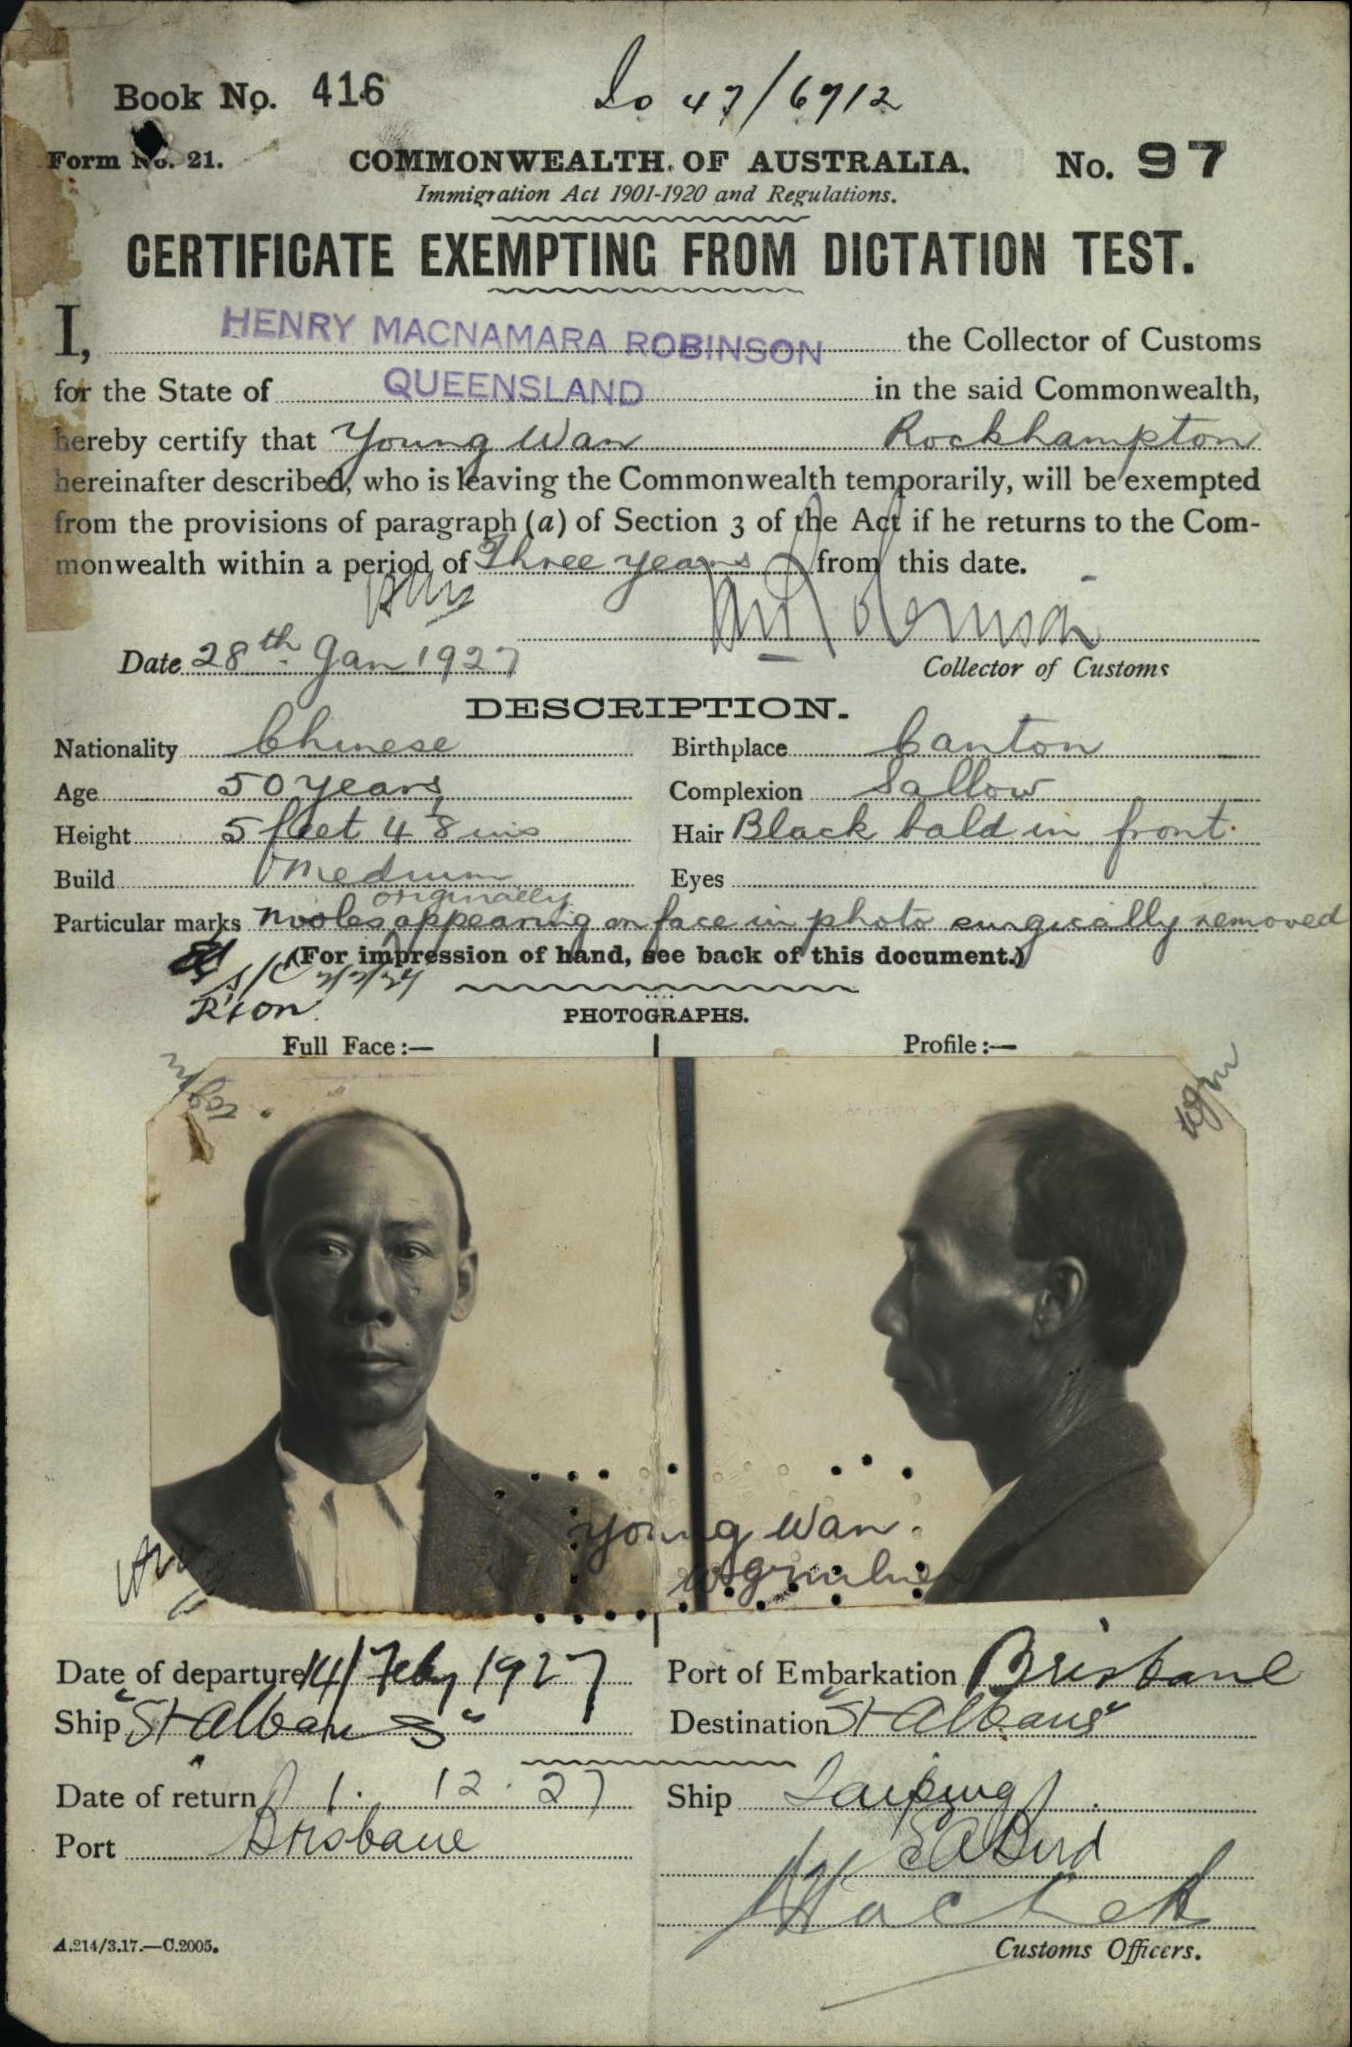 Book No. 416
47/6912
Form No. 21.
COMMONWEALTH OF AUSTRALIA.
No. 97
Immigration Act 1901-1920 and Regulations.
CERTIFICATE EXEMPTING FROM DICTATION TEST.
I, HENRY MACNAMARA ROBINSON the Collector of Customs
for the State of QUEENSLAND in the said Commonwealth,
hereby certify that Young Wan Rockhampton
hereinafter described, who is leaving the Commonwealth temporarily, will be exempted
from the provisions of paragraph (a) of Section 3 of the Act if he returns to the Com-
monwealth within a period of Three years from this date.
Date 28th Jan 1927
Collector of Customs
DESCRIPTION.
Nationality Chinese
Birthplace Canton
Age 50 years
Complexion Sallow
Height 5 feet 4 8 ins
Hair Black bald in front.
Build Medium
Eyes
originally
Particular marks Moles appearing on face in photo surgically removed
(For impression of hand, see back of this document.)
S/C
R'ton
PHOTOGRAPHS.
Full Face:—
Profile:—
Young Wan.
Date of departure 14/Feby 1927
Port of Embarkation Brisbane
Ship "St Albans"
Destination "St Albans"
Date of return 1. 12. 27
Ship Taiping
Port Brisbane
EA Bird
A.214/3.17.—C.2005.
Customs Officers.